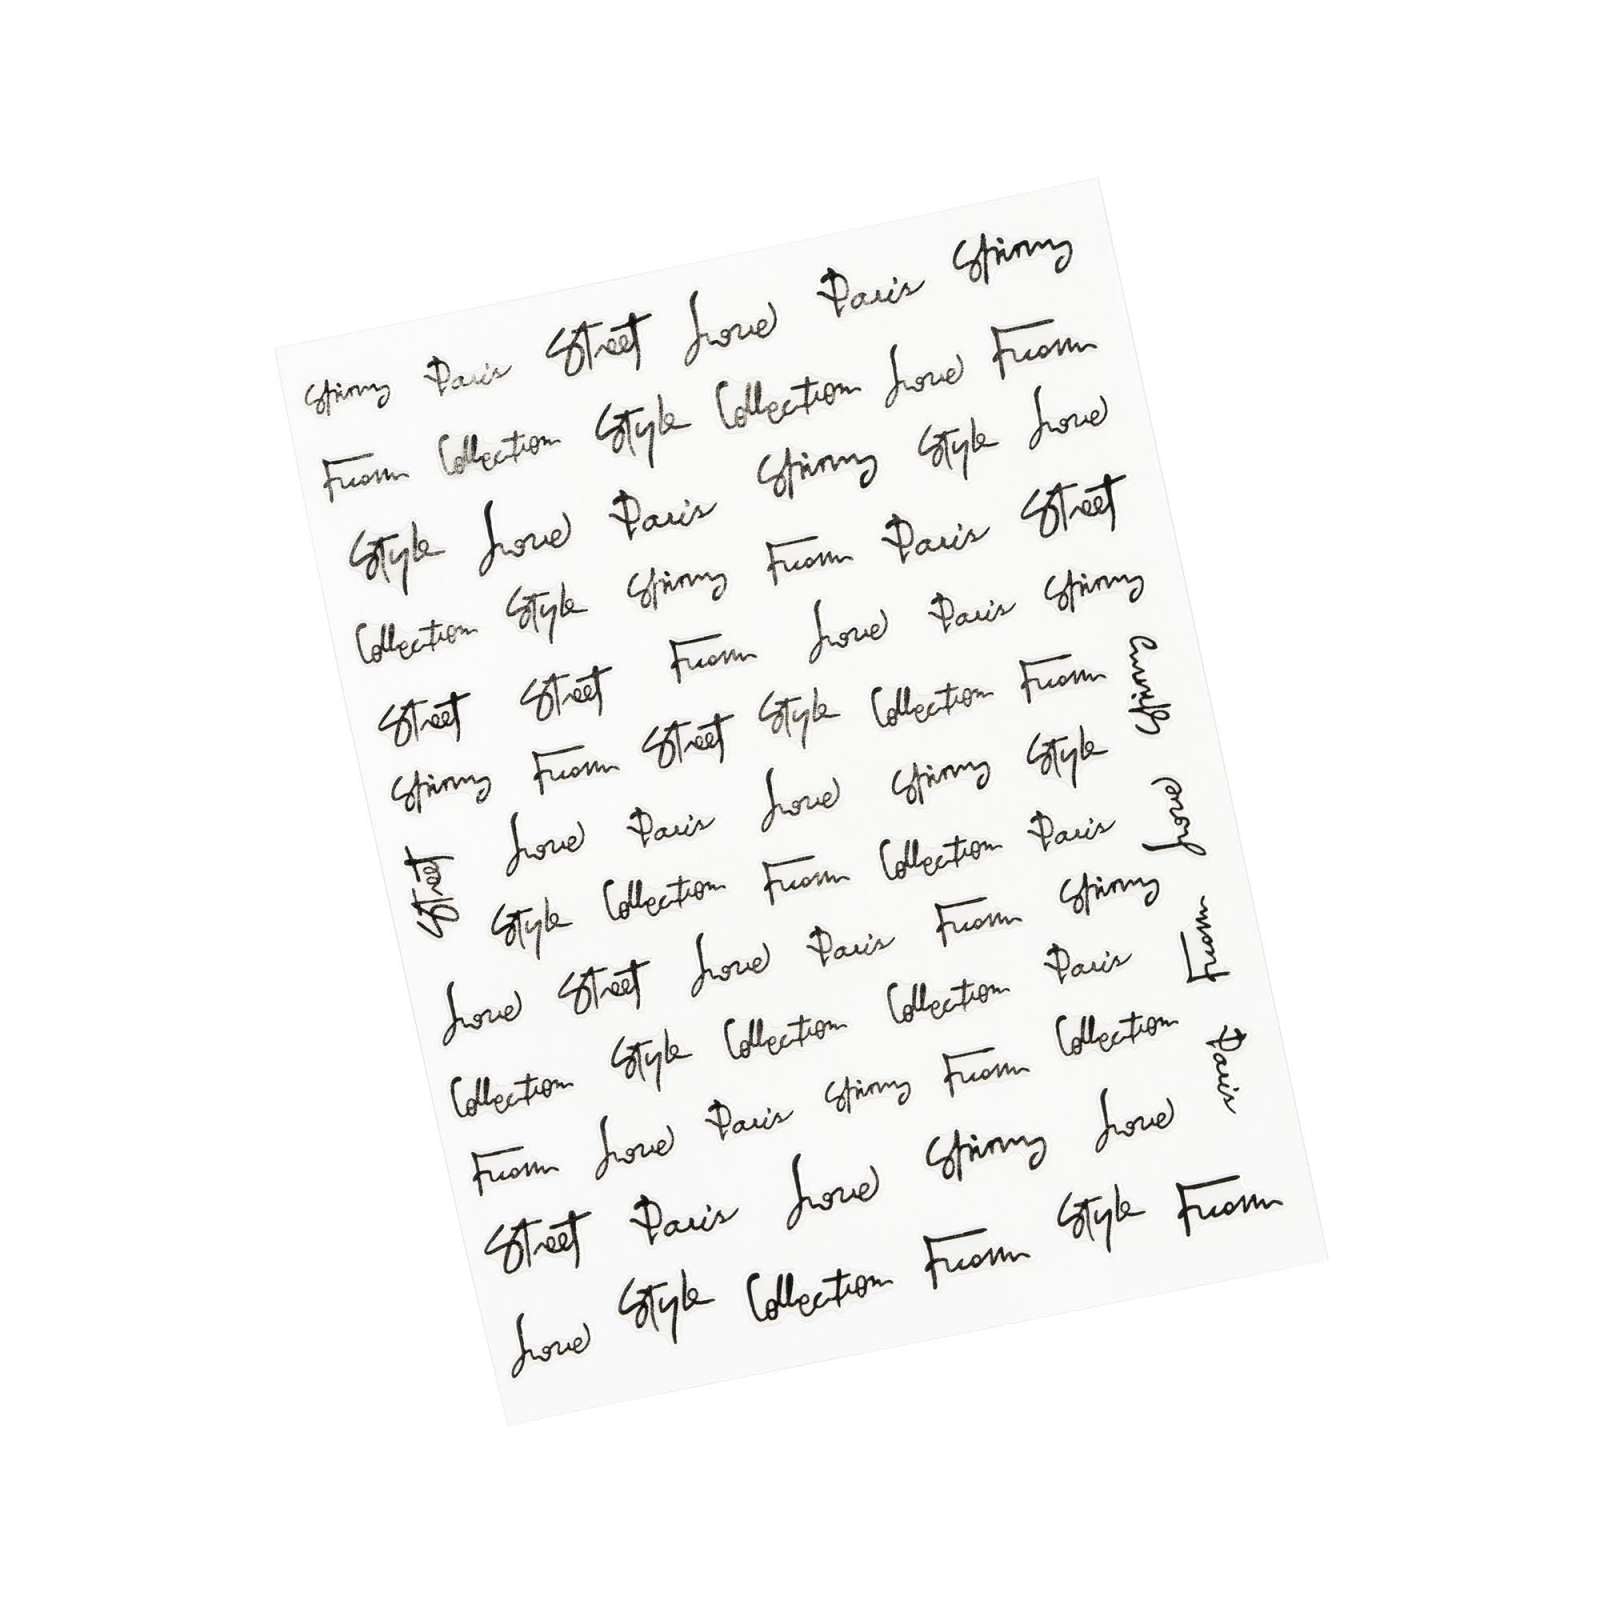 Spring Paris Street Love Paris Spring
From Collection Style Collection Love From
Style Love Paris Spring Style Love
Collection Style Spring From Paris Street
Street Street From Love Paris Spring
Spring From Street Style Collection From
Spring
Love Paris Love Spring Style
Street
Style Collection From Collection Paris
Love
Love Street Love Paris From Spring
From
Collection Style Collection Collection Paris
From Love Paris Spring From Collection
Paris
Street Paris Love Spring Love
Love Style Collection From Style From